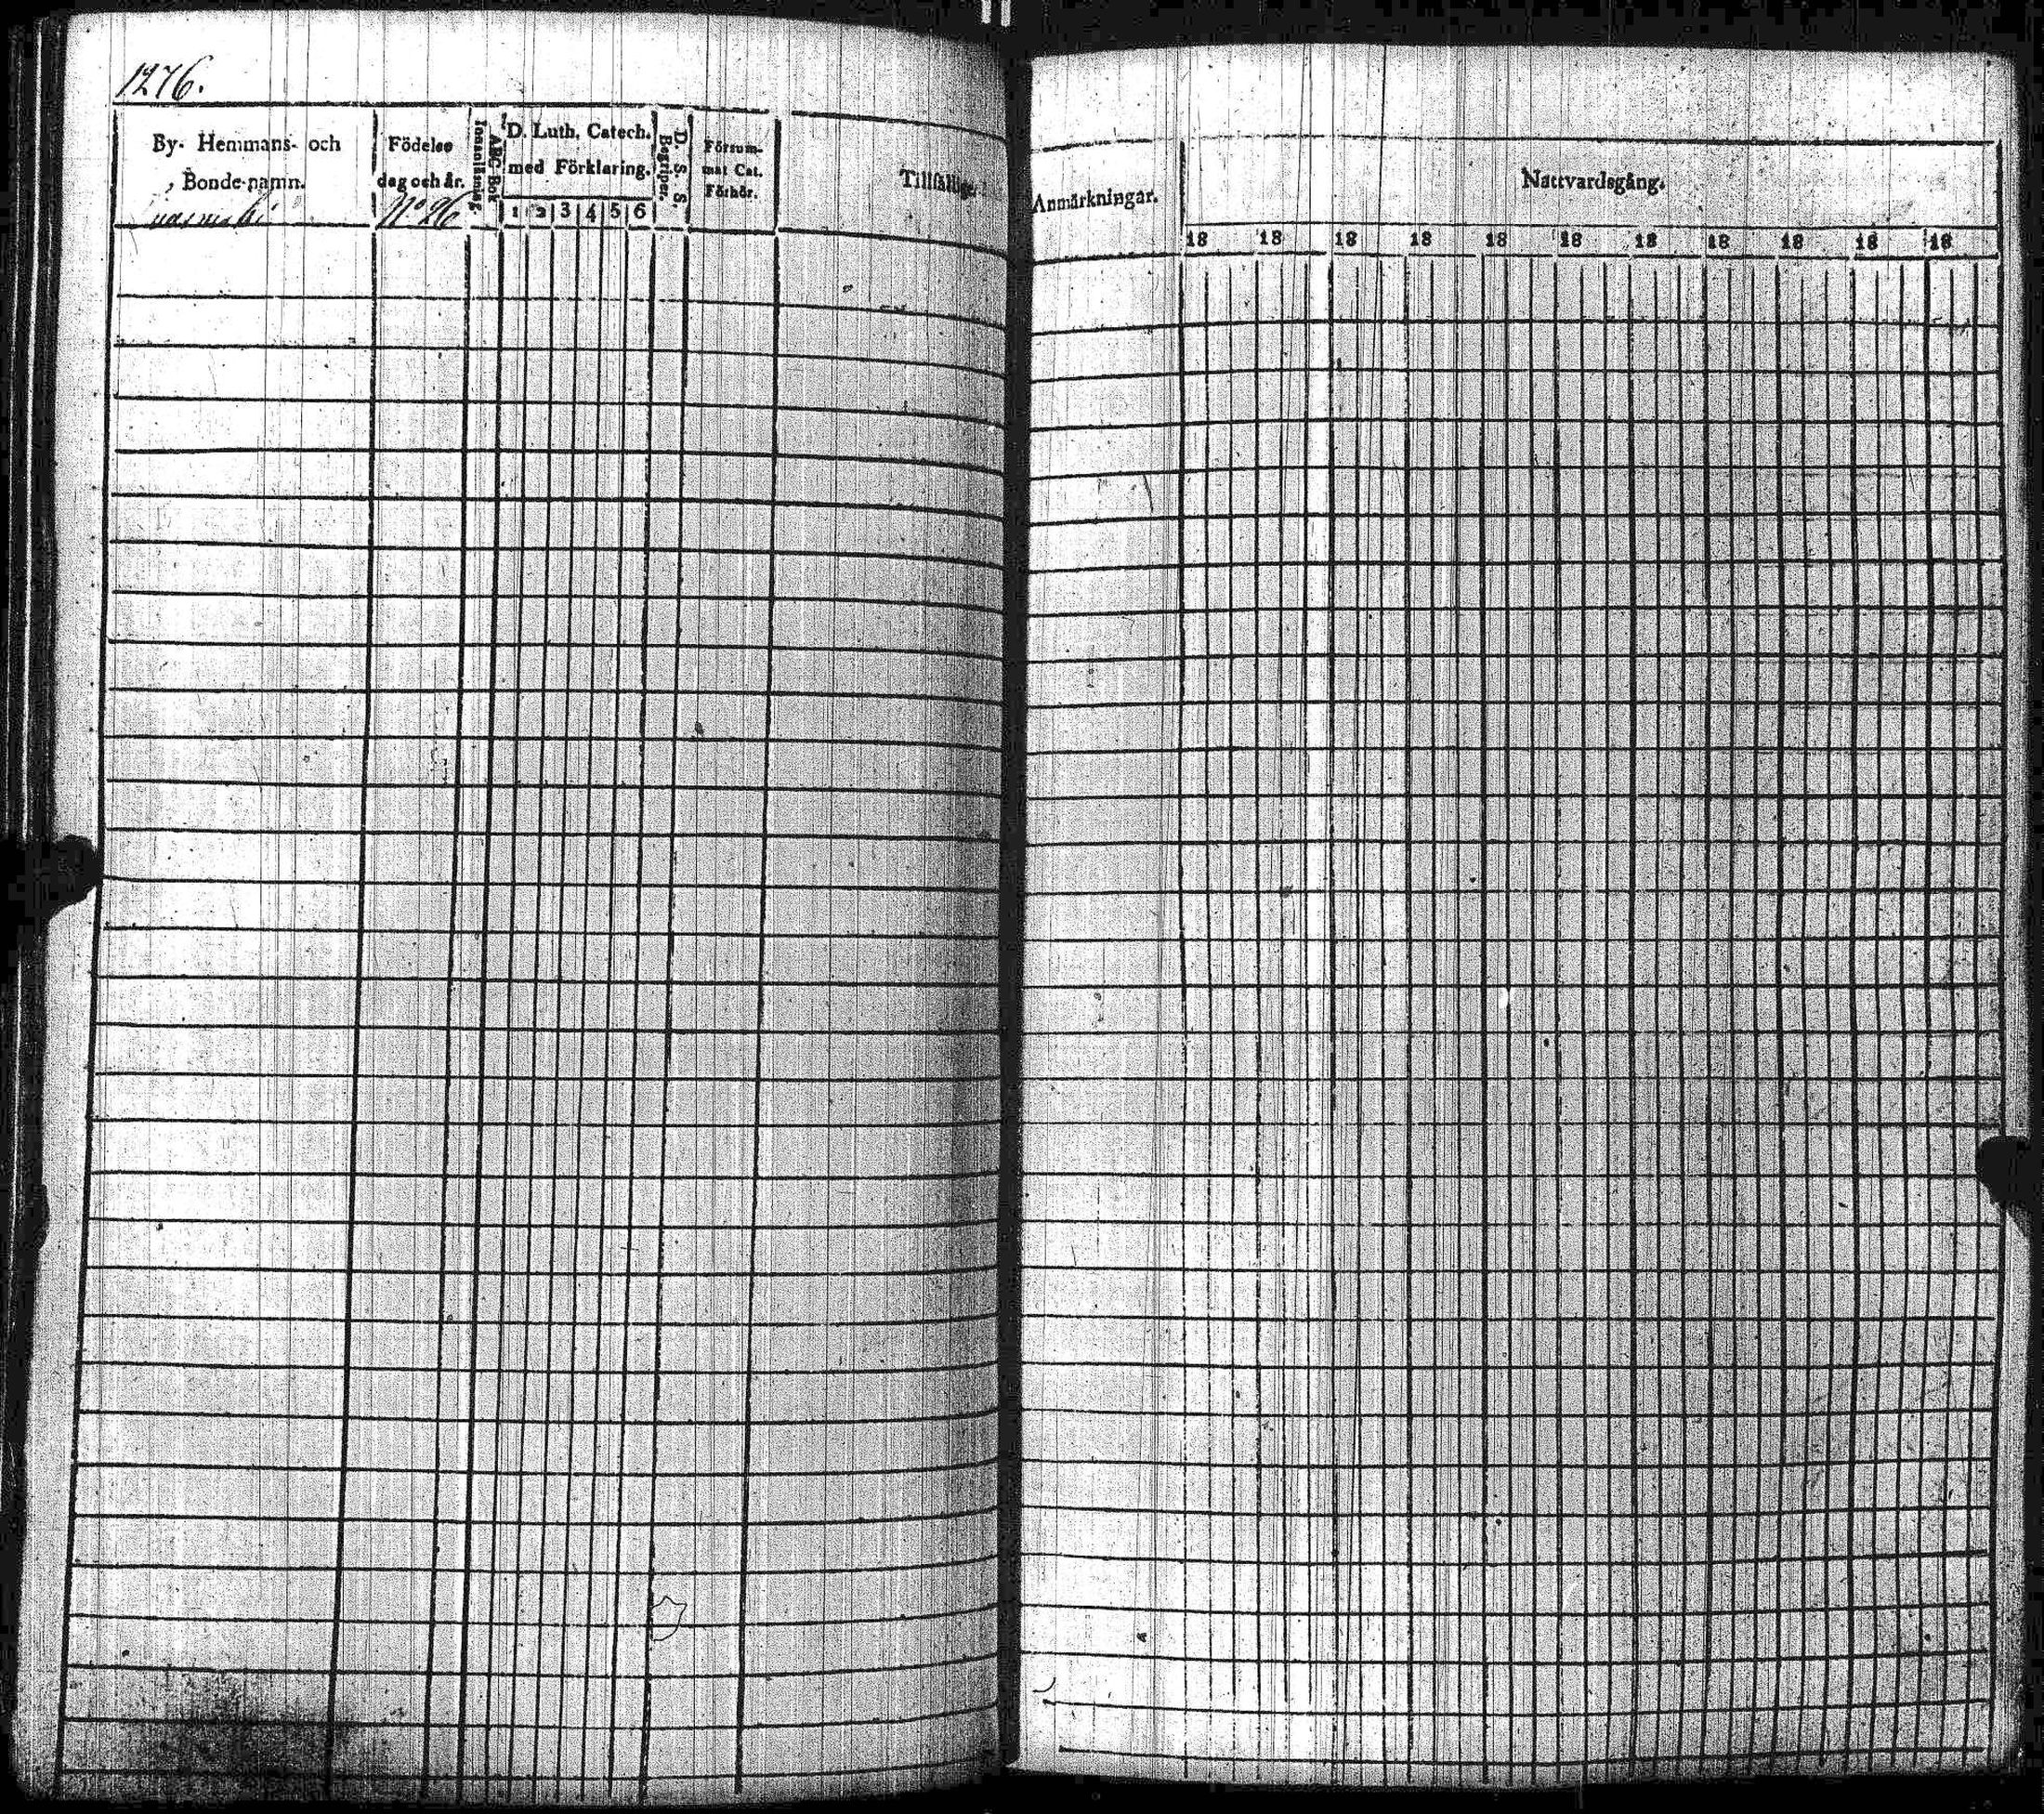 1276.
By- Hemmans- och
Bonde-namn.
Födelse
dag och år.
No 26
ABC Bok
Innanläsning.
D. Luth. Catech.
med Förklaring.
1 2 3 4 5 6
D. S. S.
Begriper.
Försum-
mat Cat.
Förhör.
Tillfällige
Anmärkningar.
Nattvardsgång.
18 18 18 18 18 18 18 18 18 18 18